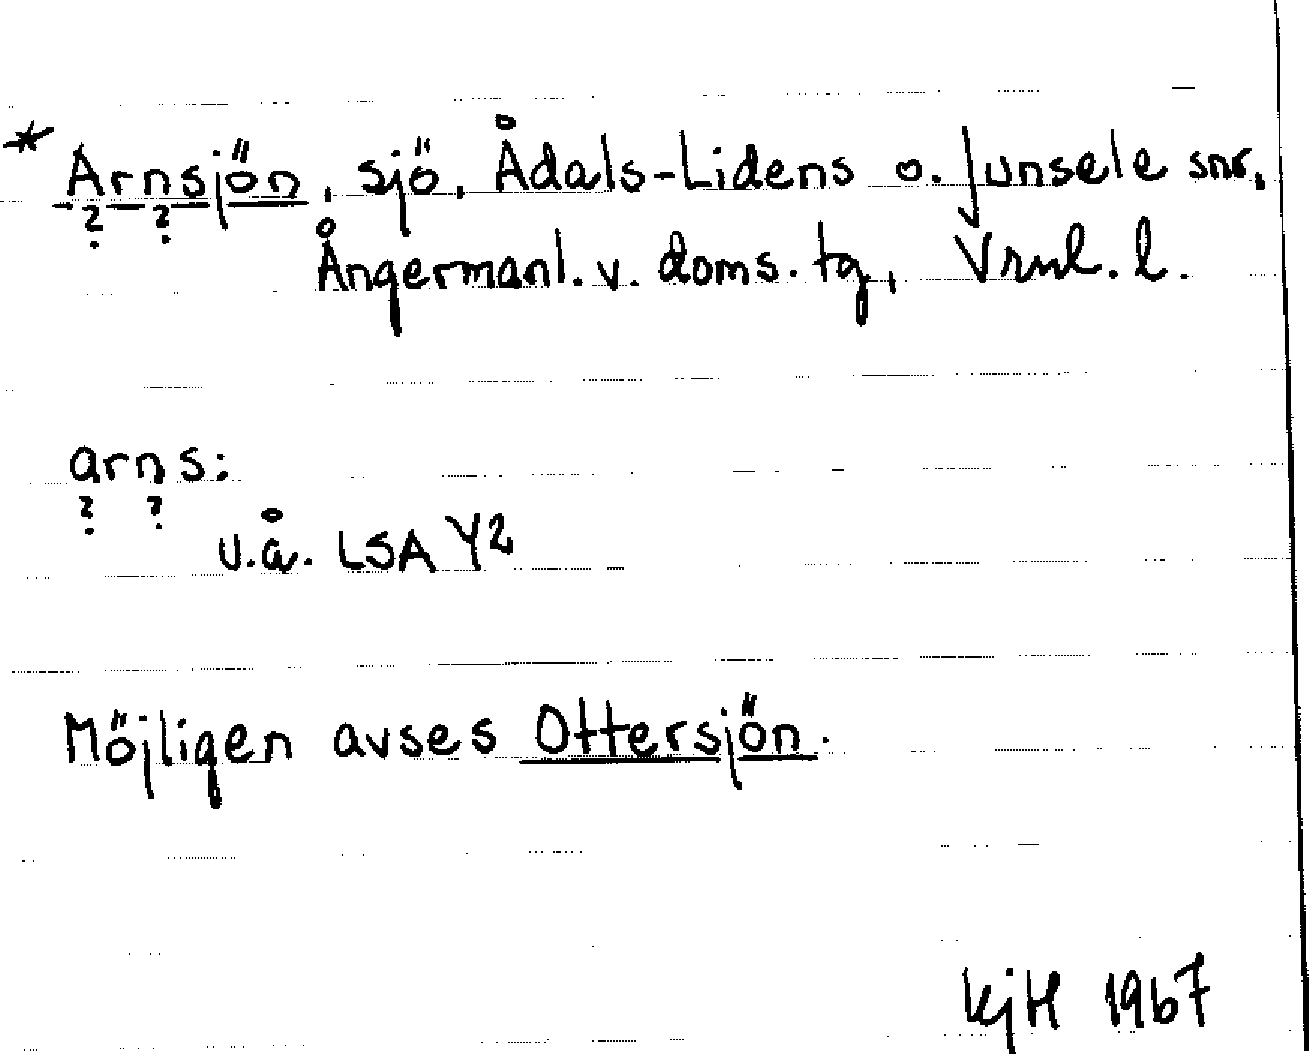 * Arnsjön, sjö, Ådals-Lidens o. Junsele snr,
? ?
Ångermanl. v. doms. tg, Vrnl. l.
arns:
? ?
u.å. LSA Y2
Möjligen avses Ottersjön.
KjH 1967